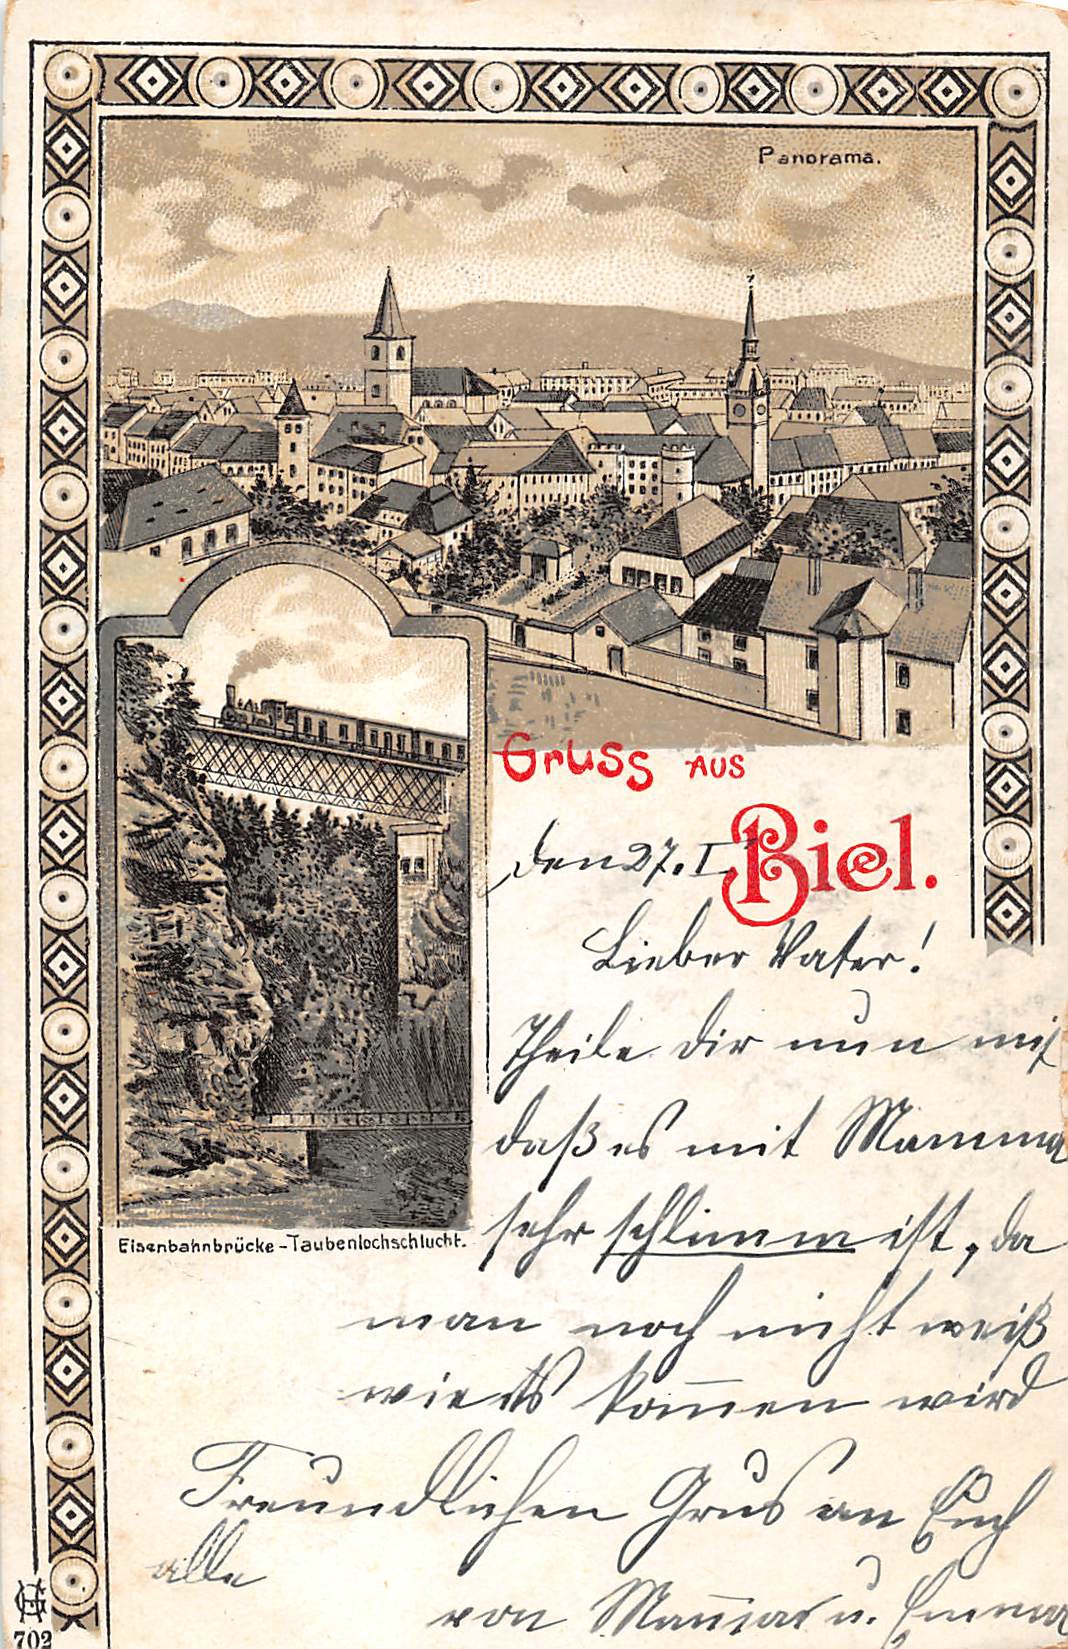 Panorama.
Gruss aus
Biel.
den 27. I.
Lieber Vater!
Theile dir nun mit
daß es mit Mamma
sehr schlimm ist, da
man noch nicht weiß
wie es kom̄en wird
Freundlichen Grus an Euch
alle
von u. Emma
Eisenbahnbrücke-Taubenlochschlucht.
702